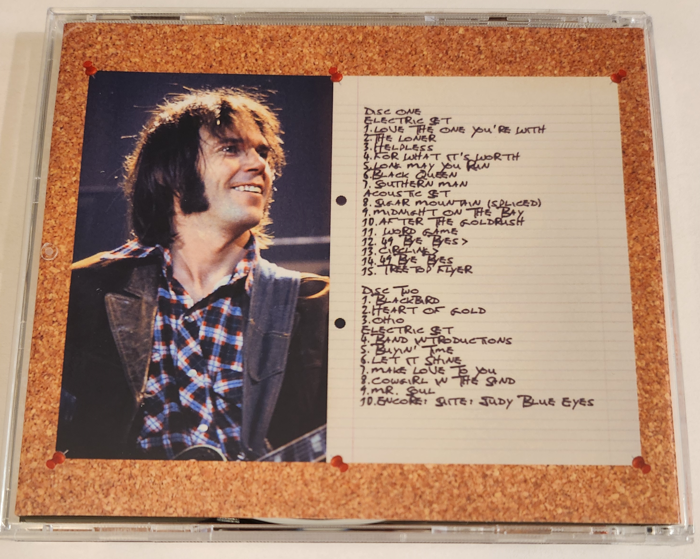 DISC ONE
ELECTRIC SET
1. LOVE THE ONE YOU'RE WITH
2. THE LONER
3. HELPLESS
4. FOR WHAT IT'S WORTH
5. LONG MAY YOU RUN
6. BLACK QUEEN
7. SOUTHERN MAN
ACOUSTIC SET
8. SUGAR MOUNTAIN (SPLICED)
9. MIDNIGHT ON THE BAY
10. AFTER THE GOLDRUSH
11. WORD GAME
12. 49 BYE BYES>
13. CIRCLINE>
14. 49 BYE BYES
15. TREETOP FLYER
DISC TWO
1. BLACKBIRD
2. HEART OF GOLD
3. OHIO
ELECTRIC SET
4. BAND INTRODUCTIONS
5. BUYIN' TIME
6. LET IT SHINE
7. MAKE LOVE TO YOU
8. COWGIRL IN THE SAND
9. MR. SOUL
10. ENCORE: SUITE: JUDY BLUE EYES